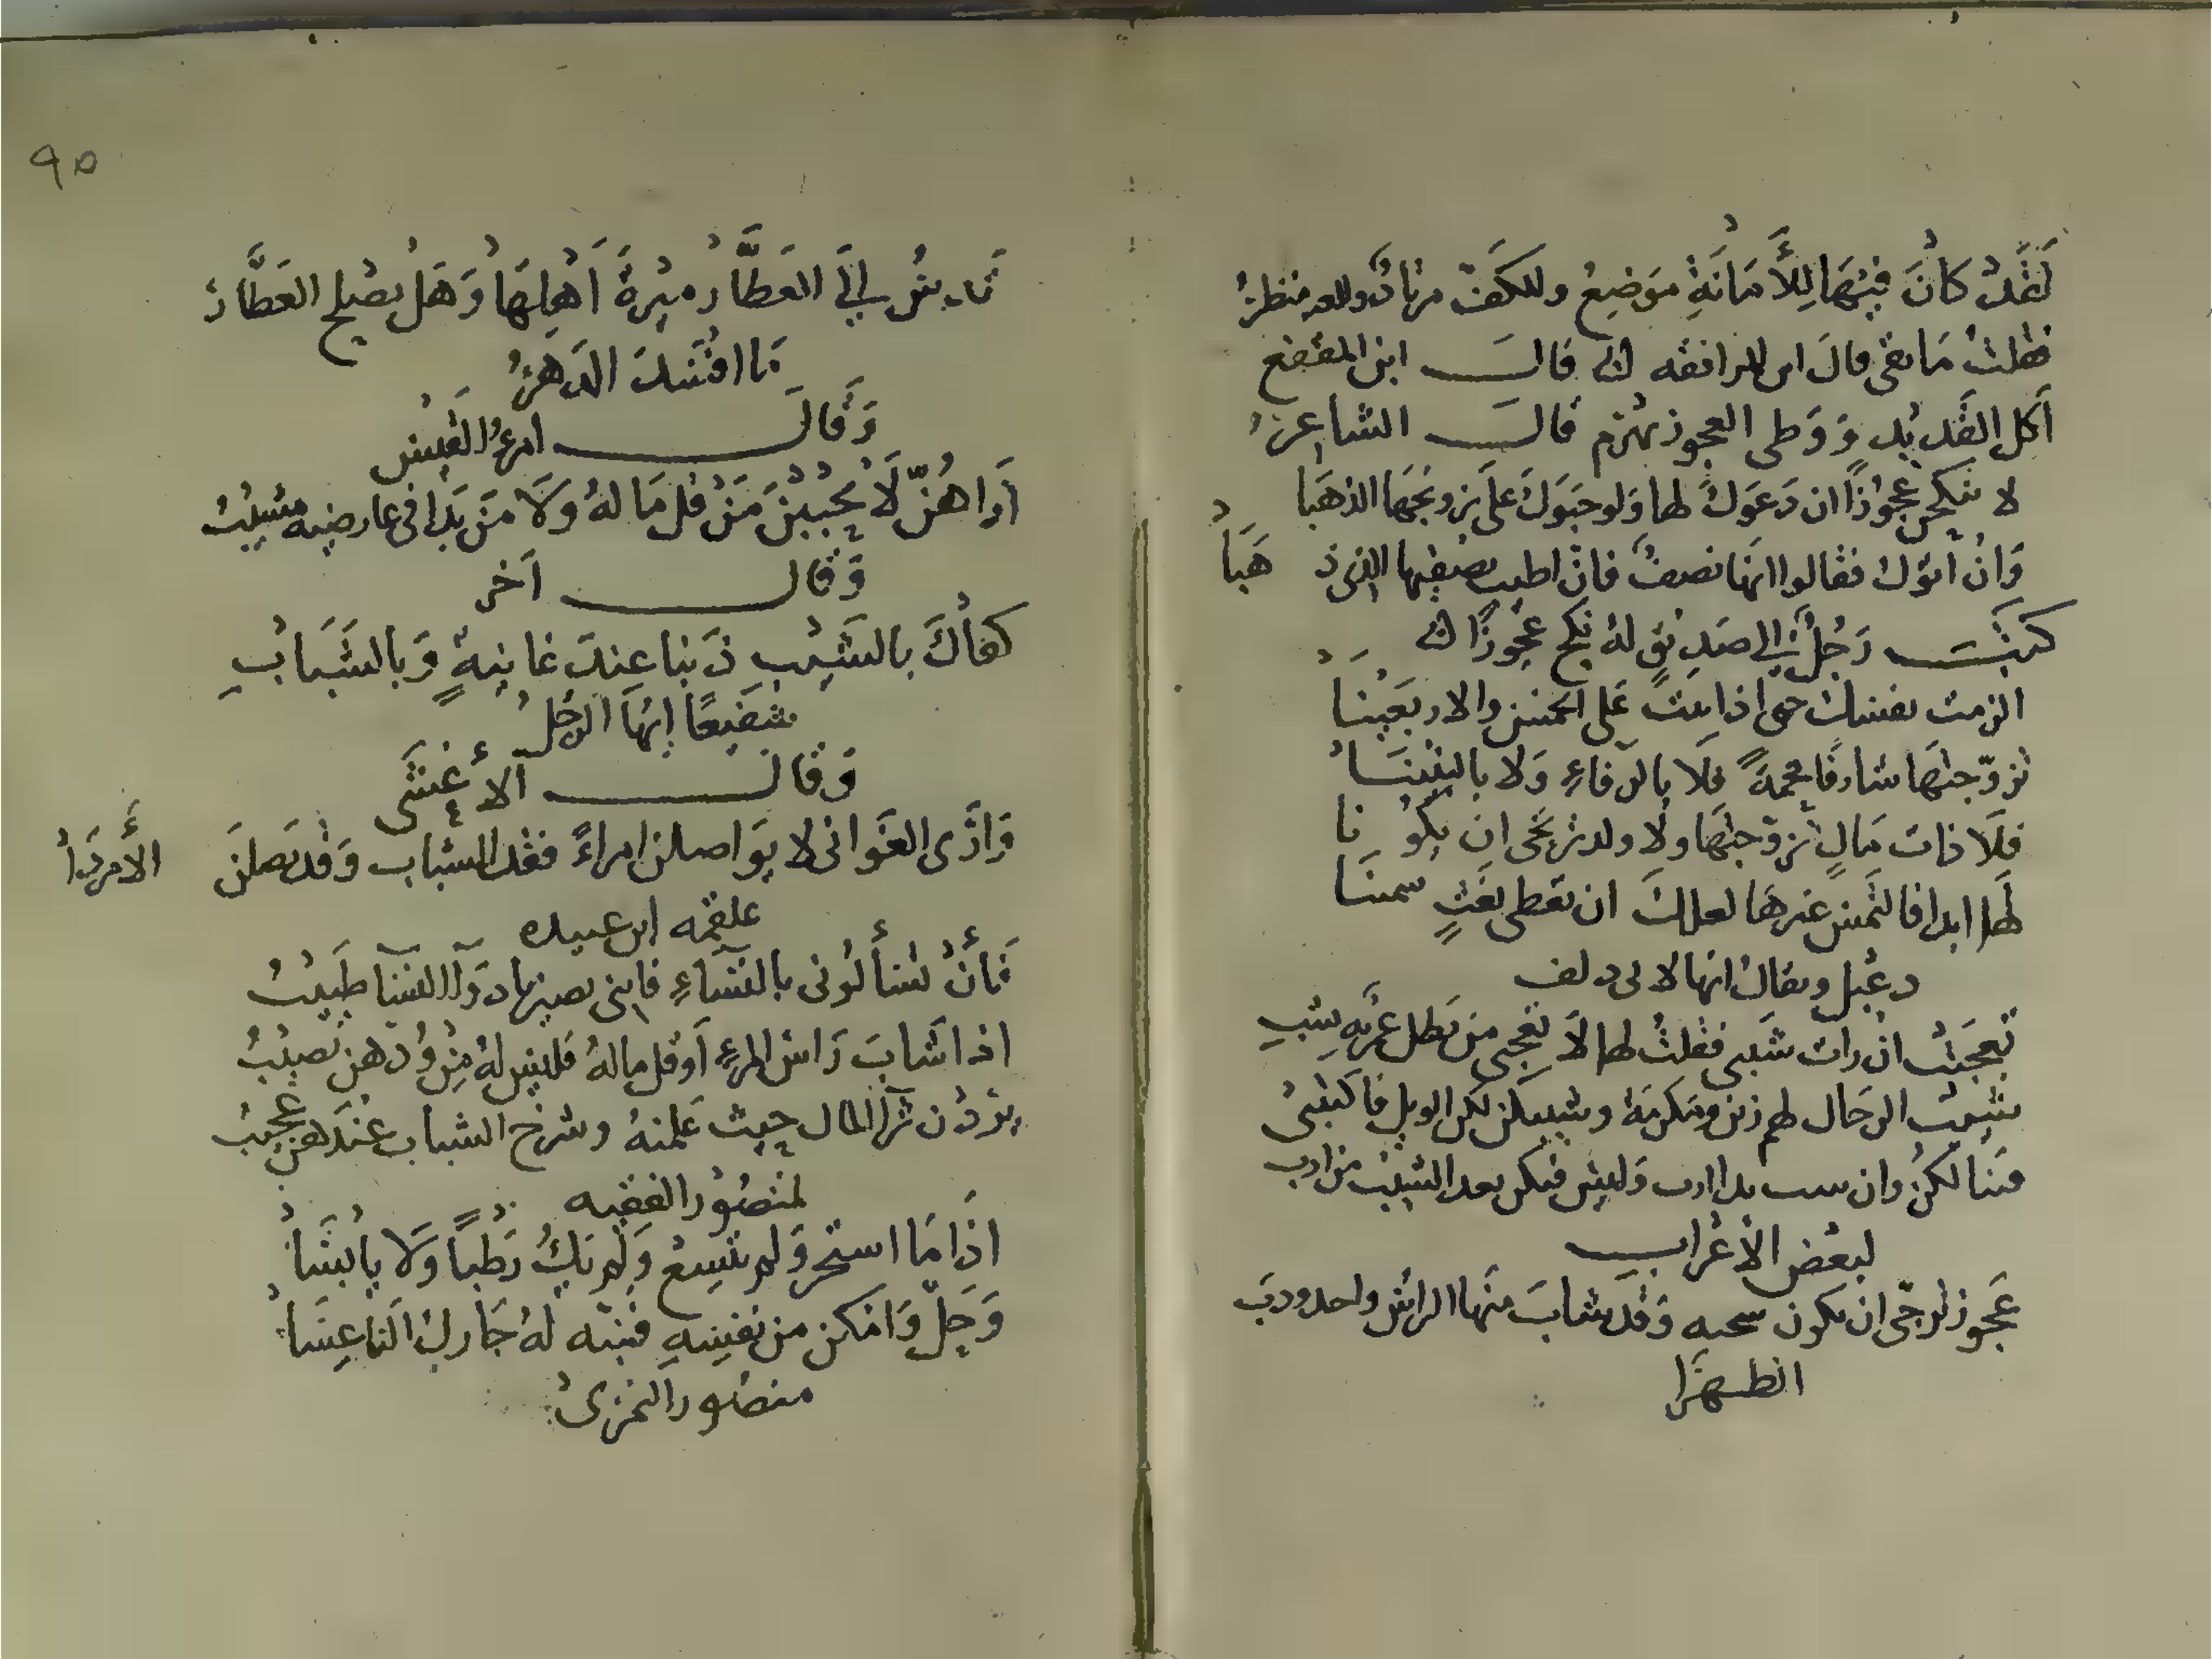 لَقَدْ كَانَ فِيْهَا لِلْأَمَانَةِ مَوْضِعٌ وللكَفِّ مرتادٌ وللعين منظرُ
فقلتُ مَا بقى قالَ ابن المرافقه قالَ ابن المقفع
أكل القَديْد وَوَطى العجوز يهرم قالَ الشاعرُ
لا تنكحن عجُوزاً ان دَعَوكَ لها وَلو حبَوكَ عَلَى تزويجَها الذهَبَا
وَانْ اتوْك فقالوا انهَا نصفٌ فانّ اطيب نصفيها الذى ذهَبَا
كتبَ رَجُلٌ إلى صَدِيْقٍ لهُ نكح عجُوزًا
الزمت نفسك حتى اذا اتيتَ عَلى الخمس والاربَعيْنَا
تزوّجتهَا شارفًا جمةً فلَا بالرفاءِ وَلا بالبَنيْنَا
فلَا ذات مَالٍ تزوّجتهَا ولا ولد ترتجى ان يكُونا
لَها ابدا فالتمس غيرهَا لعلك ان تعطى بغَثٍ سمينَا
دعْبل ويقال انها لابى دلف
تعجّبتْ انْ رات شَيبى فقلتُ لها لَا تعجبى مَن يَطل عمرٌ به يَشبِ
شيبُ الرجَال لهم زين ومَكرمَة وشيبكن لكن الويل فاكتئبى
فينَا لكنّ وان شيب بدا ارب وَليسَ فيكن بعد الشيب من ارب
لبَعْض الأعْراب
عَجوز ترجّى ان تكون صبيه وَقد شابَ منهَا الراسُ واحدودبَ
الظهرَا
٩٥
تَدُسّ إلَى العَطَّار مِيْرَةَ أهْلِهَا وَهَلْ يصْلح العَطَّارُ
مَا افْسَدَ الدَهرُ
وَقالَ امرءُ القيْس
أرَاهُنّ لَا يُحْبِبْنَ مَنْ قل مَا لهُ وَلَا مَن بَدا فى عارضيه مشيبُ
وَقالَ آخر
كفاكَ بالشَيْبِ ذَنبا عِندَ غانيةٍ وَبالشَبَابِ
شفيْعًا ايّهَا الرجُلُ
وَقالَ الأعْشَى
وَارَى الغَوانى لا يوَاصلن امراءً فقد الشباب وَقد يَصلنَ الأمرَدَا
علقمه ابن عبيده
فَأنْ تسْألوْنى بالنّسَاءِ فاننى بصير بادوَآ النسآ طَبيْبُ
اذا شابَ رَاسُ المرءِ أو قل مالهُ فليْس لهُ مِنْ وُدّهن نصيْبُ
يردْن ثرآ المال حيث عَلمنهُ وشرْخ الشباب عنْدَهنّ عجيْبُ
لمنصُوْر الفقيه
اذَا مَا استحر وَلم تتّسِعْ وَلم يَكُ رَطْباً وَلَا يابسَا
وَجَلّ وَامْكن من نفسِهِ فنبّه لهُ جَارك الناعِسَا
منصُور النمرىّ